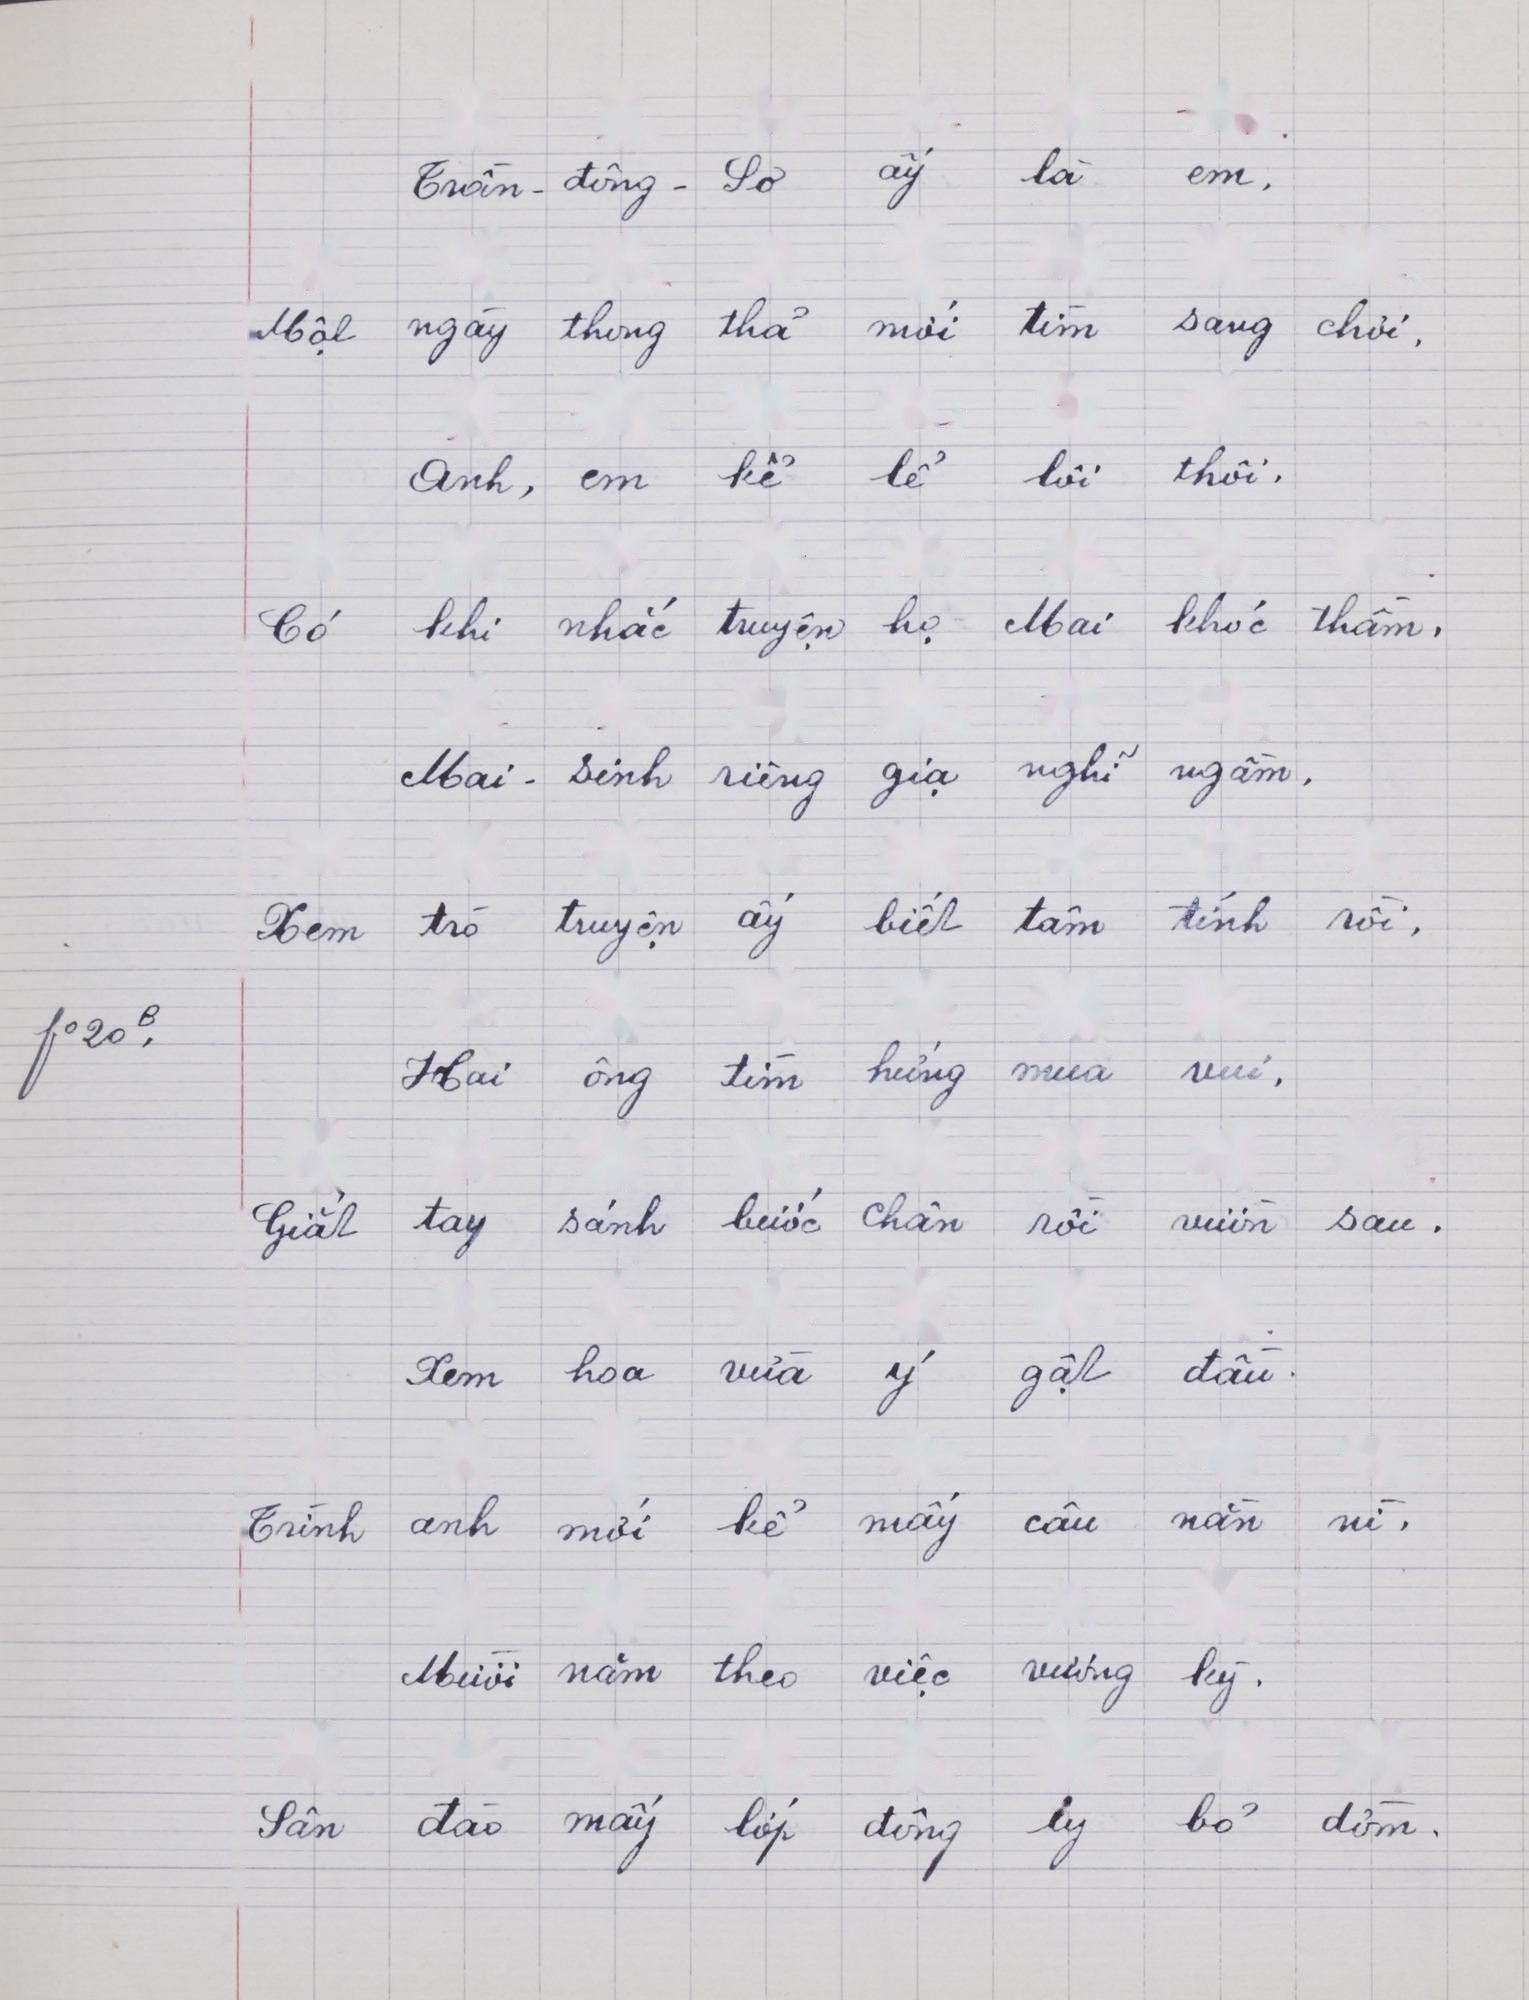 Trần - đông - Sơ ấy là em,
Một ngày thong thả mới tìm sang chơi,
Anh, em kể lể lôi thôi,
Có khi nhắc truyện họ Mai khóc thầm,
Mai - sinh riêng giạ nghĩ ngầm,
Xem trò truyện ấy biết tâm tính rồi,
fº 20 B,
Hai ông tìm hứng mua vui,
Giắt tay sánh bước chân rồi vườn sau.
Xem hoa vừa ý gật đầu.
Trình anh mới kể mấy câu nằn nì,
Mười năm theo việc vương kỳ,
Sân đào mấy lớp đông ly bỏ dờm.